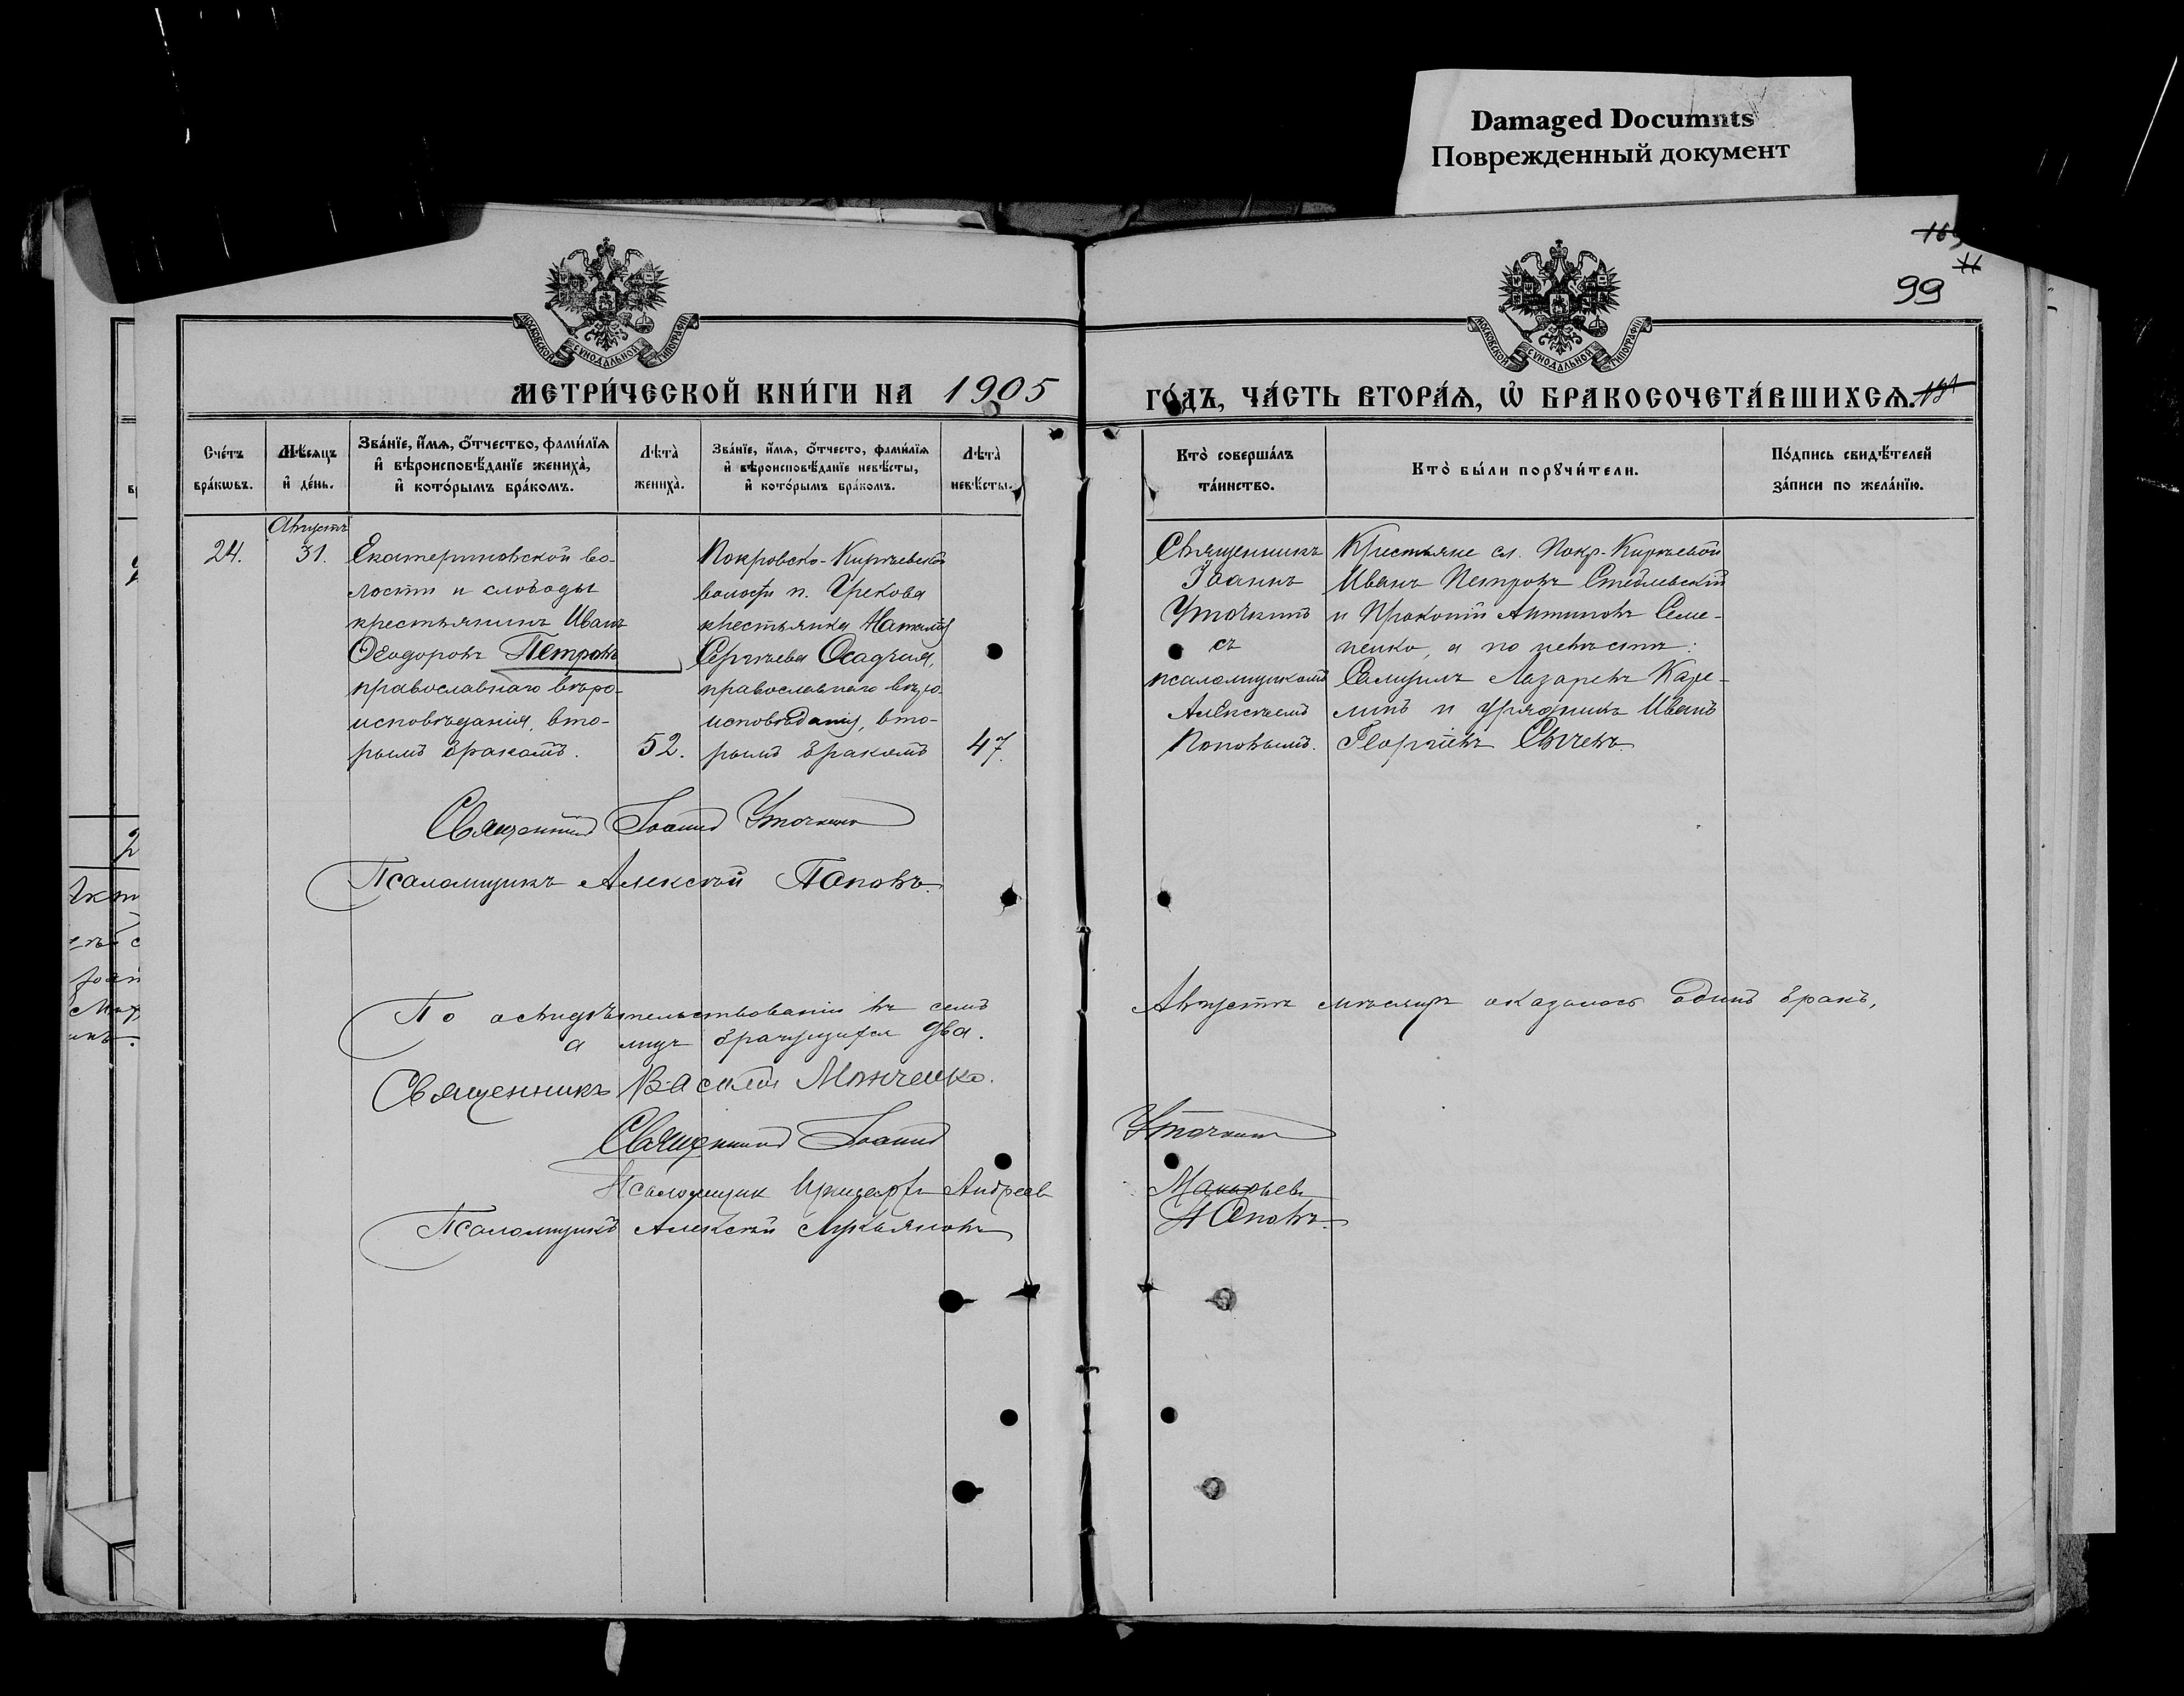 Damaged Documnts
Поврежденный документ
99
МОСКОВСКОЙ СѴНОДАЛЬНОЙ ТИПОГРАФІИ
МОСКОВСКОЙ СѴНОДАЛЬНОЙ ТИПОГРАФІИ
МЕТРИ́ЧЕСКОЙ КНИ́ГИ НА 1905
ГО́ДЪ, ЧА́СТЬ ВТОРА́Ѧ, Ѡ҆ БРАКОСОЧЕТА́ВШИХСѦ.
Сче́тъ
бра́кѡвъ.
Мѣ́сѧцъ
и҆ де́нь.
Зва́нїе, и҆́мѧ, ѻ҆́тчество, фами́лїѧ
и҆ вѣроисповѣ́данїе жениха̀,
и҆ кото́рымъ бра́комъ.
Лѣта̀
жениха̀.
Зва́нїе, и҆́мѧ, ѻ҆́тчесто, фами́лїѧ
и҆ вѣроисповѣ́данїе невѣ́сты,
и҆ кото́рымъ бра́комъ.
Лѣта̀
невѣ́сты.
Кто̀ соверша́лъ
та́инство.
Кто̀ бы́ли порꙋчи́тели.
По́дпись свидѣ́телей
за́писи по жела́нїю.
24.
Августъ
31.
Екатериновской во-
лости и слободы
крестьянинъ Иванъ
Ѳеодоровъ Петровъ
православнаго вѣро-
исповѣданія, вто-
рымъ бракомъ.
52.
Покровско-Кирѣевской
волости п. Грекова
крестьянка Наталія
Сергѣева Осадчая,
православнаго вѣро-
исповѣданія, вто-
рымъ бракомъ
47.
Священникъ
Іоаннъ
Уточкинъ
съ
псаломщикомъ
Алексѣемъ
Поповымъ.
Крестьяне сл. Покр-Кирѣевой
Иванъ Петровъ Стеблевскій
и Прокопій Антиповъ Семе-
ненко, а по невѣстѣ:
Самуилъ Лазаревъ Каре-
линъ и урядникъ Иванъ
Георгіевъ Сычевъ.
Священникъ Іоаннъ Уточкинъ
Псаломщикъ Алексѣй Поповъ.
По освидѣтельствованіи въ семъ Августѣ мѣсяцѣ оказалось одинъ бракъ,
а лицъ брачущихся два.
Священникъ Василій Монченко.
Священникъ Іоаннъ Уточкинъ
Псаломщик Андреев Макарьевъ
Псаломщикъ Алексѣй Лукьяновъ Поповъ.